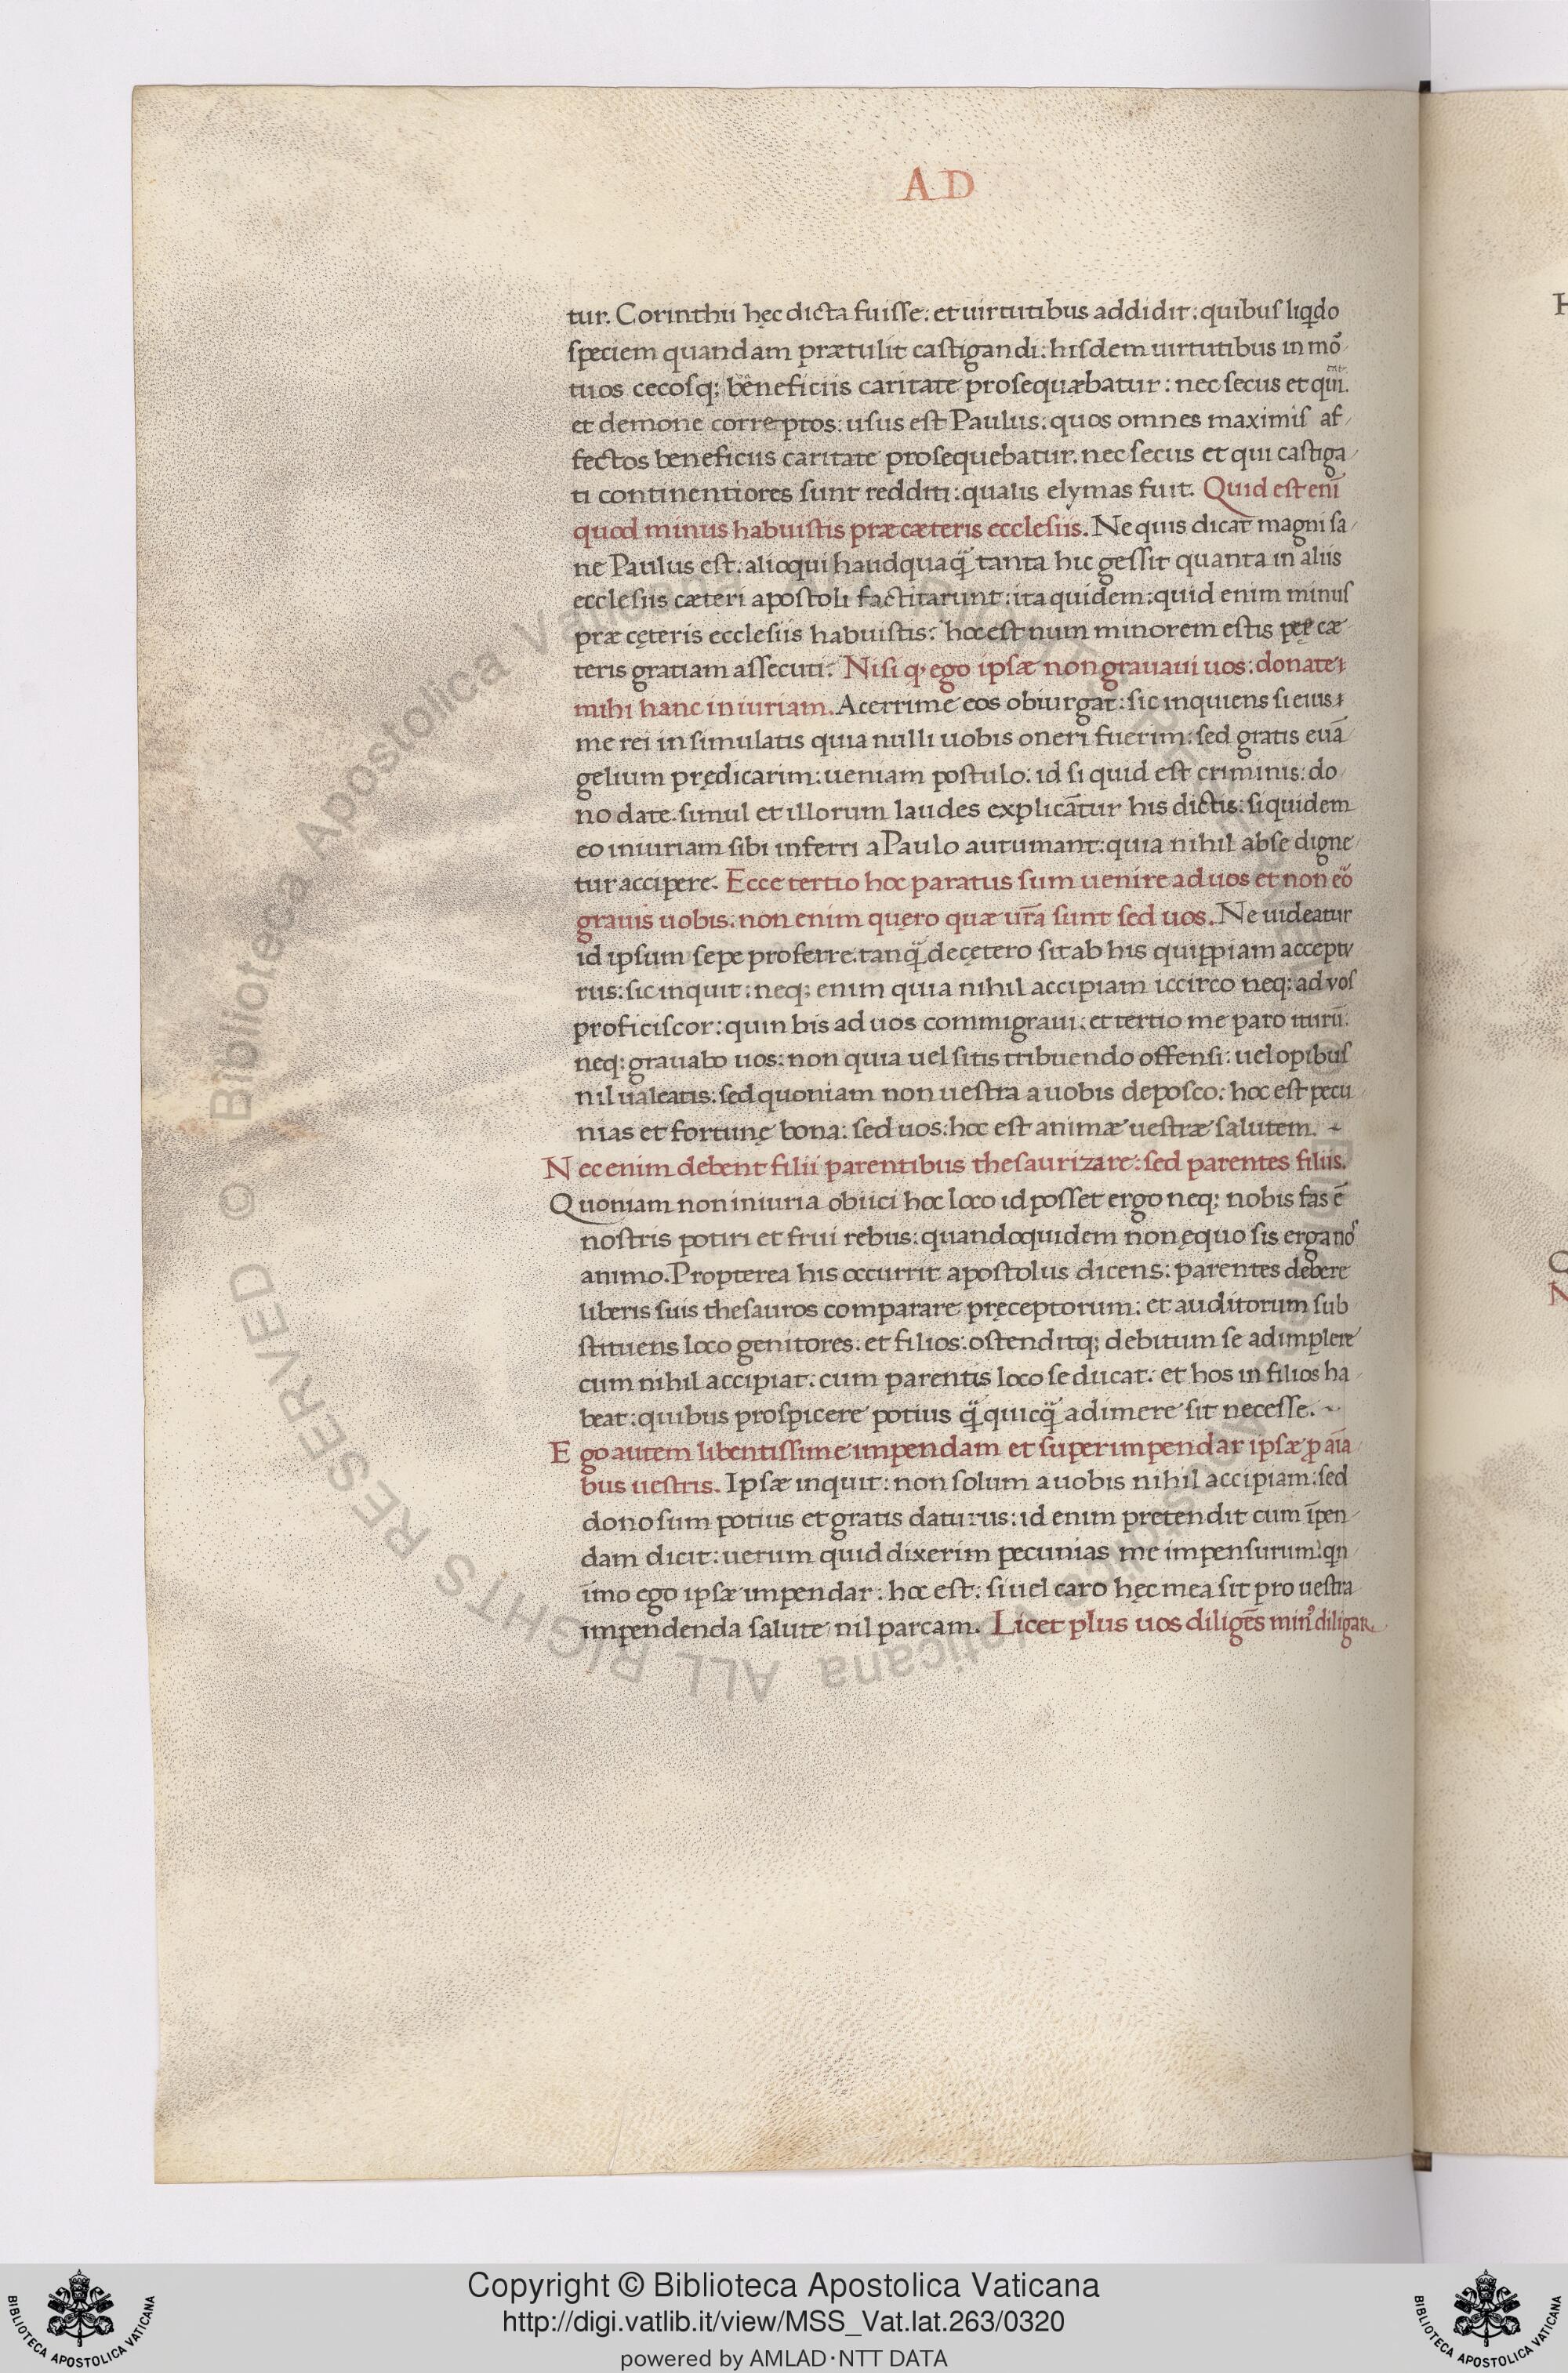 AD
tur. Corinthii hęc dicta fuisse: et uirtutibus addidit: quibus liq̇do
speciem quandam prætulit castigandi: hisdem uirtutibus in mõ
tuos cecosq; beneficiis caritate prosequæbatur: nec secus et qui.
et demone correptos: usus est Paulus: quos omnes maximis af
fectos beneficiis caritate prosequebatur. nec secus et qui castiga
ti continentiores sunt redditi: qualis elymas fuit. Quid est enī
quod minus habuistis præ cæteris ecclesiis. Ne quis dicat magni sa
ne Paulus est. alioqui haudquaq̃ tanta hic gessit quanta in aliis
ecclesiis cæteri apostoli factitarunt: ita quidem: quid enim minus
præ cęteris ecclesiis habuistis: hoc est num minorem estis cæ
teris gratiam assecuti: Nisi q̇ ego ipsæ non grauaui uos: donate
mihi hanc iniuriam. Acerrime eos obiurgat: sic inquiens si eius
me rei insimulatis quia nulli uobis oneri fuerim: sed gratis euā
gelium prędicarim: ueniam postulo: id si quid est criminis: do
no date. simul et illorum laudes explicātur his dictis: siquidem
eo iniuriam sibi inferri a Paulo autumant: quia nihil ab se digne
tur accipere. Ecce tertio hoc paratus sum uenire ad uos et non eō
grauis uobis: non enim quęro quæ ur̃a sunt sed uos. Ne uideatur
id ipsum sepe proferre. tanq̃ de cętero sit ab his quippiam acceptu
rus: sic inquit: neq; enim quia nihil accipiam iccirco neq: ad vos
proficiscor: quin bis ad uos commigraui: et tertio me paro iturū.
neq: grauabo uos: non quia uel sitis tribuendo offensi: uel opibus
nil ualeatis: sed quoniam non uestra a uobis deposco: hoc est pecu
nias et fortunę bona: sed uos: hoc est animæ uestræ salutem.
Nec enim debent filii parentibus thesaurizare: sed parentes filiis.
Quoniam non iniuria obiici hoc loco id posset ergo neq; nobis fas ē
nostris potiri et frui rebus: quandoquidem non ęquo sis erga noˢ
animo. Propterea his occurrit apostolus dicens: parentes debere
liberis suis thesauros comparare pręceptorum: et auditorum sub
stituens loco genitores: et filios: ostenditq; debitum se adimplere
cum nihil accipiat: cum parentis loco se ducat: et hos in filios ha
beat: quibus prospicere potius q̃ quicq̃ adimere sit necesse.
Ego autem libentissime impendam et superimpendar ipsæ ꝓ aīa
bus uestris. Ipsæ inquit: non solum a uobis nihil accipiam: sed
dono sum potius et gratis daturus: id enim pretendit cum īpen
dam dicit: uerum quid dixerim pecunias me impensurum: qn
imo ego ipsæ impendar: hoc est: si uel caro hęc mea sit pro uestra
impendenda salute nil parcam. Licet plus uos diligēs min⁹ diligar.
© Biblioteca Apostolica Vaticana
ALL RIGHTS RESERVED
Copyright © Biblioteca Apostolica Vaticana
http://digi.vatlib.it/view/MSS_Vat.lat.263/0320
powered by AMLAD·NTT DATA
BIBLIOTECA APOSTOLICA VATICANA
BIBLIOTECA APOSTOLICA VATICANA